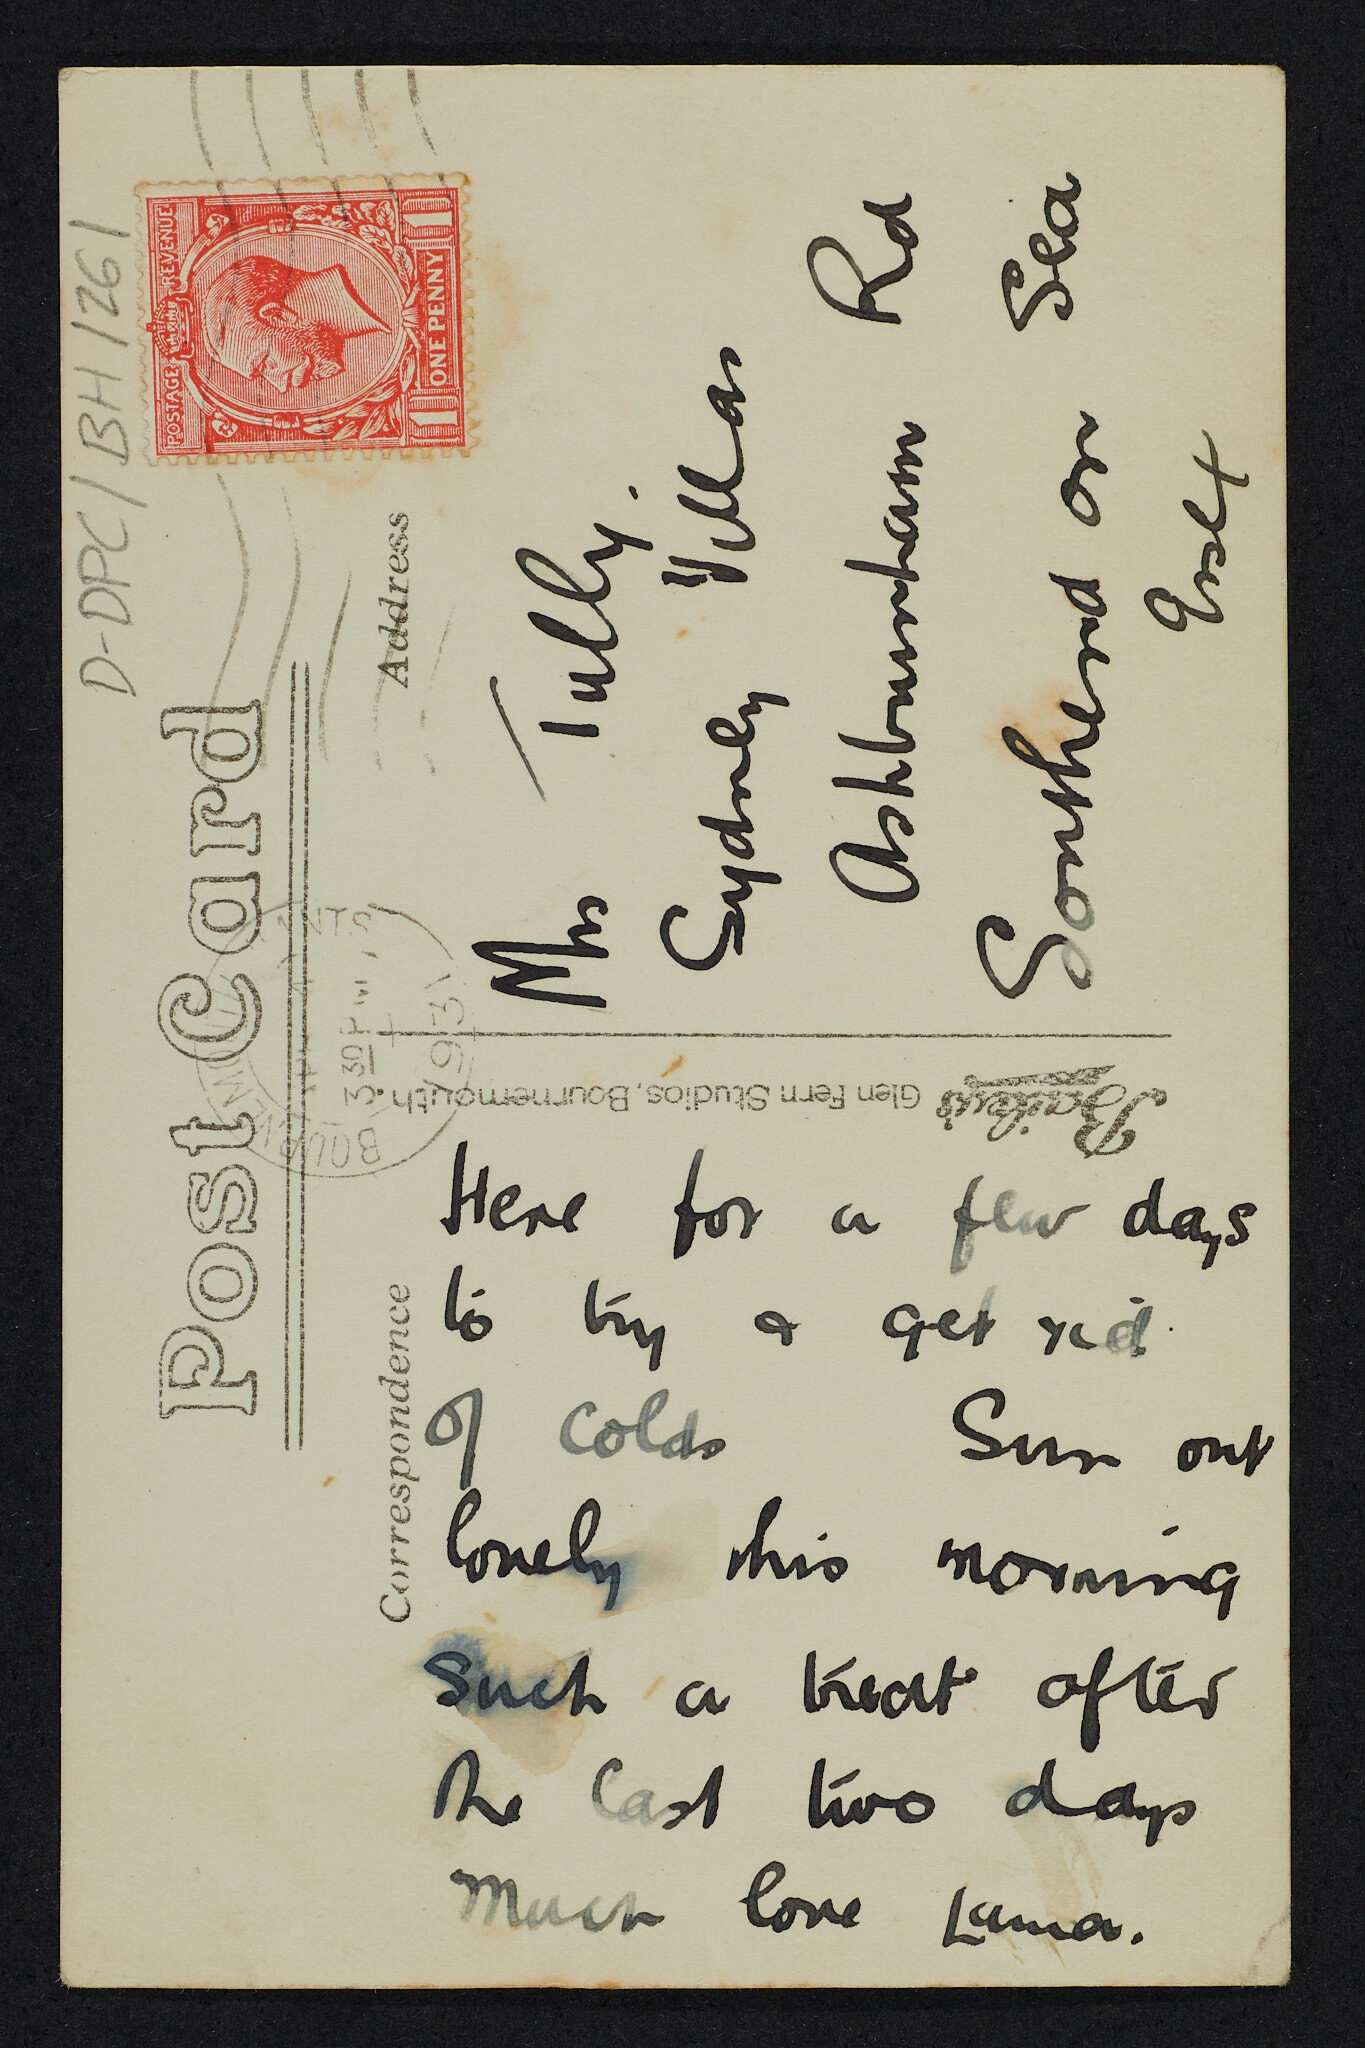 D-DPC/BH/261
Post Card
POSTAGE REVENUE
ONE PENNY
1 1
3 30 PM
1931
Correspondence
Address
Here for a few days
to try & get rid
of colds Sun out
lovely this morning
Such a treat after
the last two days
Much love
Mrs Tully.
Sydney Villas
Ashburnham Rd
Southend on Sea
Bailey's
Glen Fern Studios, Bournemouth.